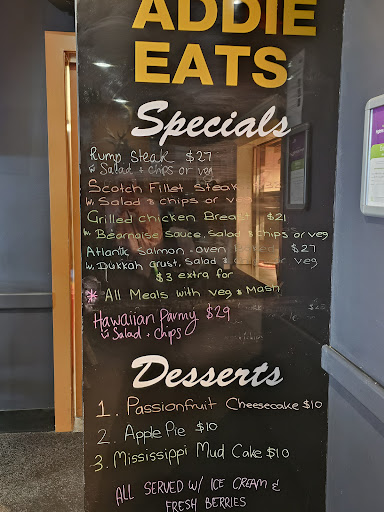 ADDIE
EATS
Specials
Rump Steak $27
w Salad + chips or veg
Scotch Fillet Steak
w. Salad & chips or veg
Grilled chicken Breast $21
w. Béarnaise Sauce, Salad & chips or veg
Atlantic Salmon - oven $27
w. Dukkah crust, Salad & or veg
$3 extra for
* All Meals with veg & Mash
Hawaiian Parmy $29
w Salad + Chips
Desserts
1. Passionfruit Cheesecake $10
2. Apple Pie $10
3. Mississippi Mud Cake $10
ALL SERVED W/ ICE CREAM &
FRESH BERRIES